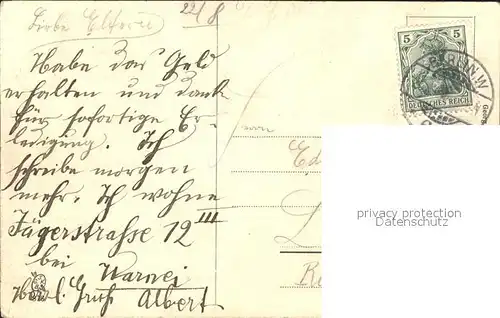 Liebe Eltern 22/8
Habe das Geld
erhalten und dank
für sofortige Er-
ledigung. Ich
schreibe morgen
mehr. Ich wohne
Jägerstrasse 12 III
bei Warnei
Herzl. Gruß Albert
5 5
DEUTSCHES REICH
BERLIN.W
Ed
privacy protection
Datenschutz